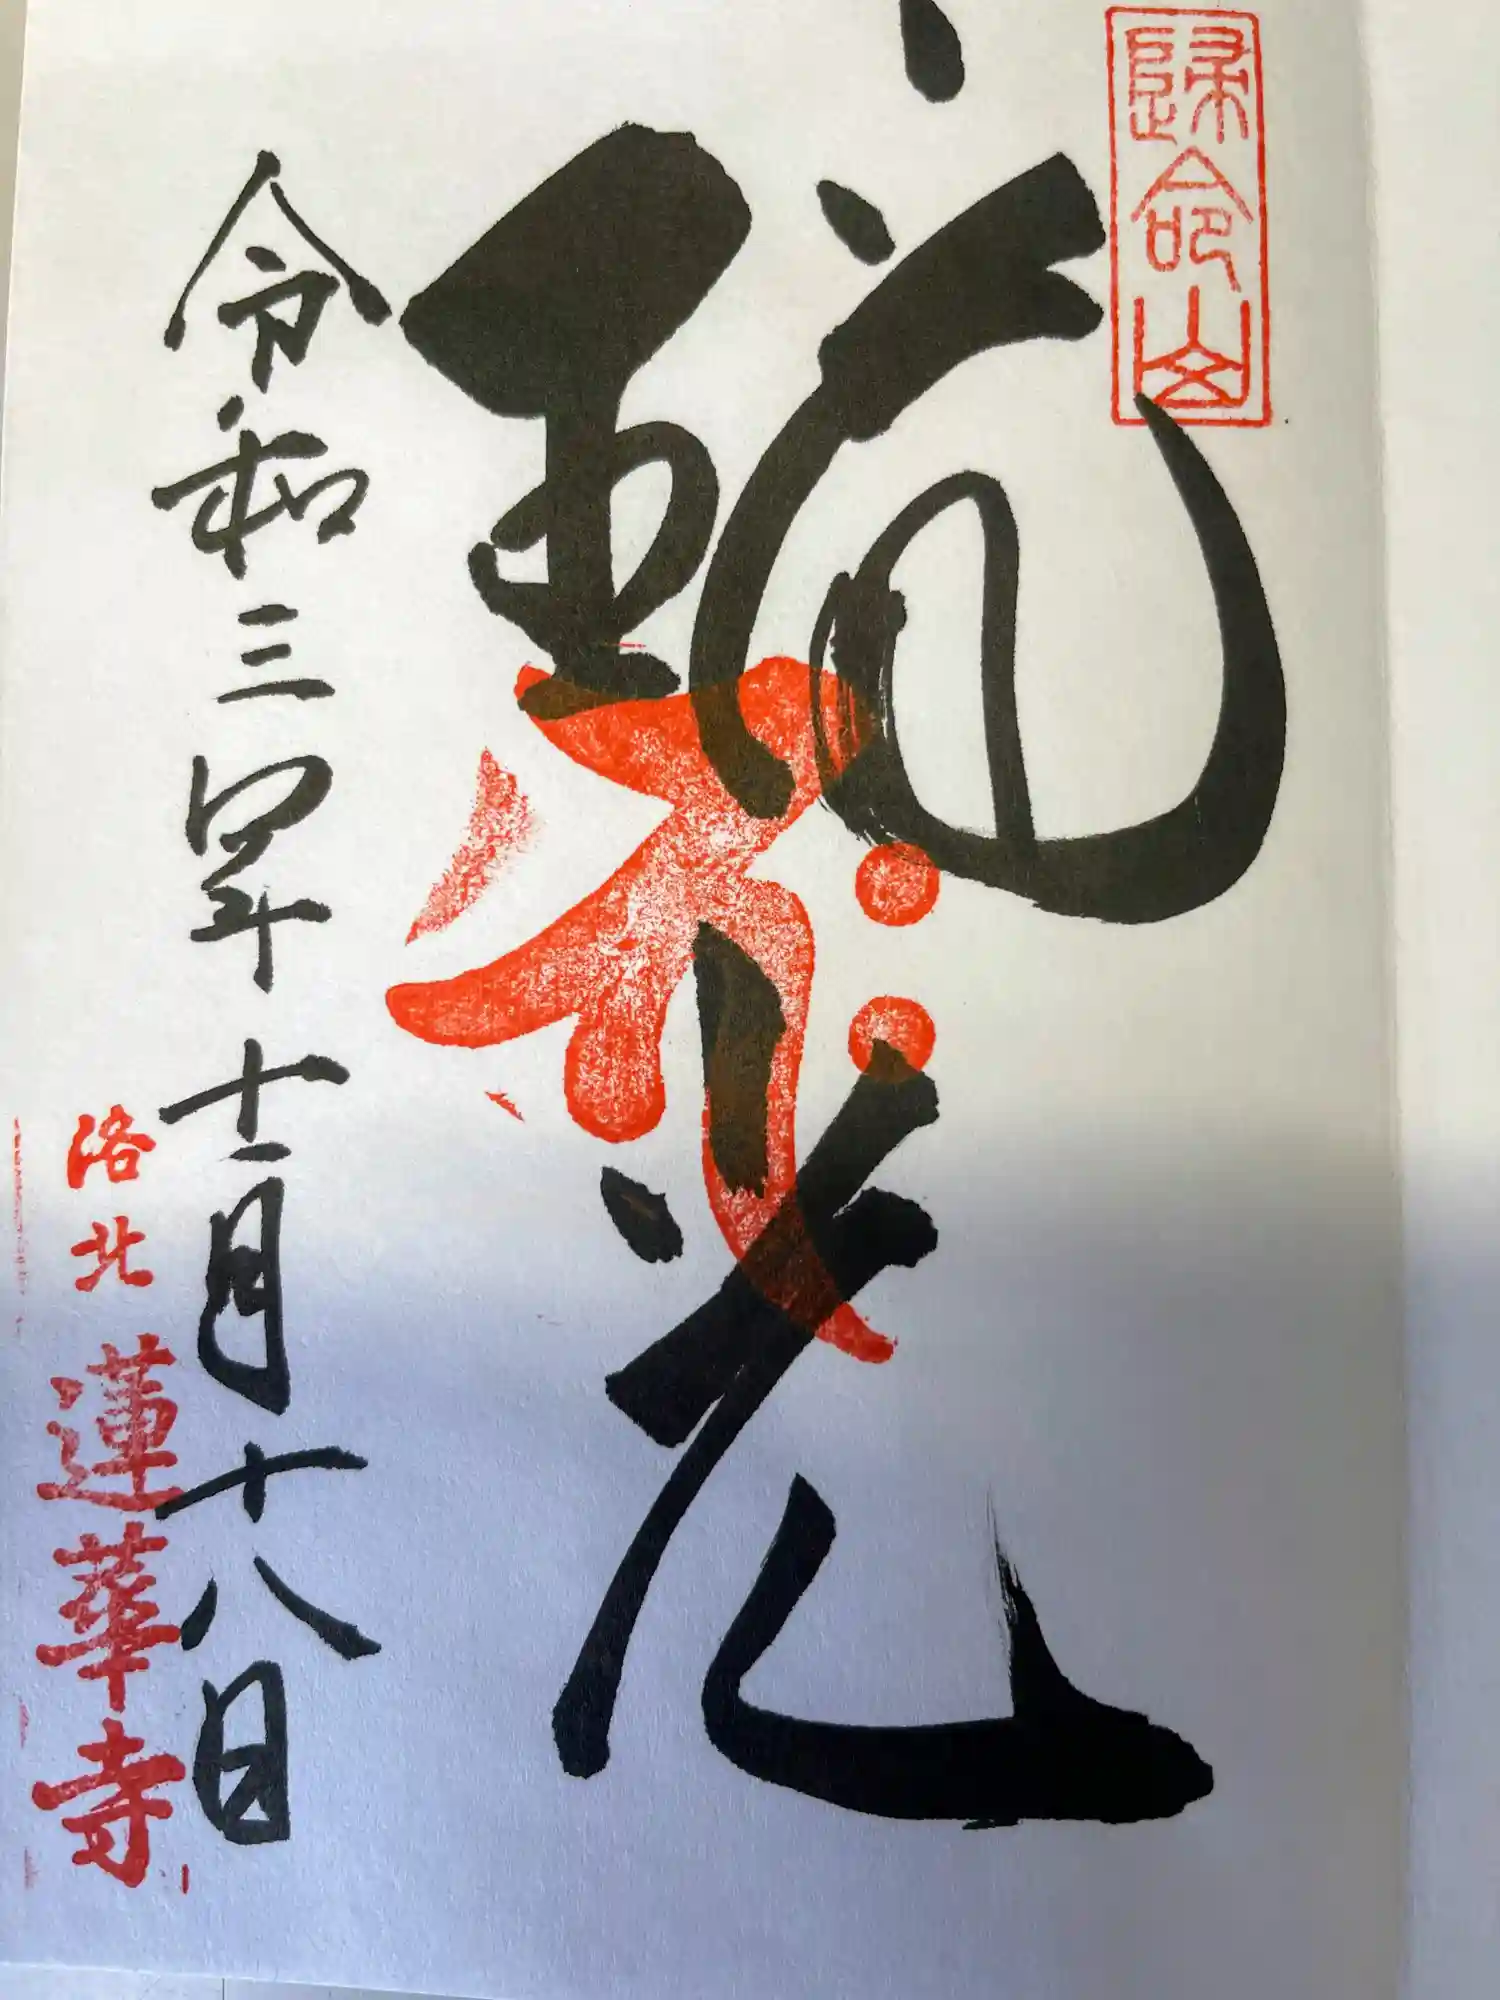 歸命山
光
令和三年十一月十八日
洛北 蓮華寺